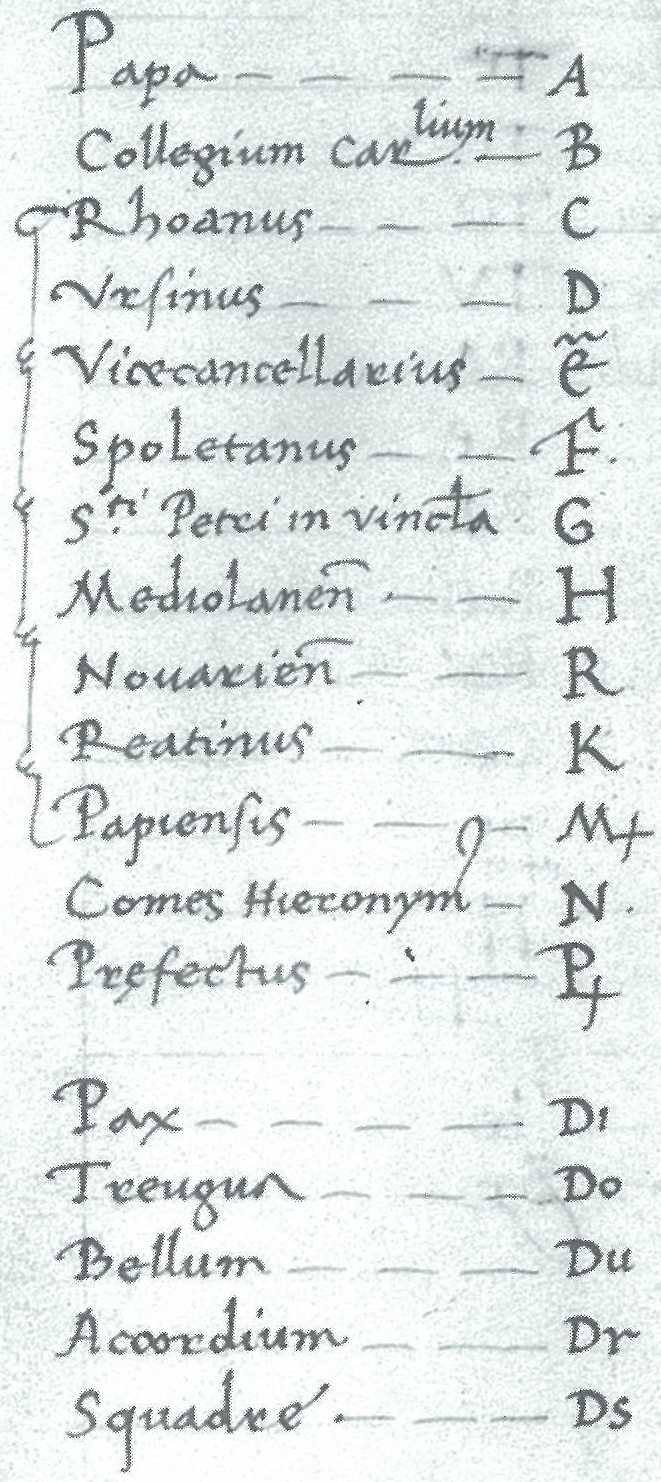 Papa — — — — A
Collegium Carlium — B
Rhoanus — — — C
Vrsinus — — — D
Vicecancellarius — ẽ
Spoletanus — — F.
S.ti Petri in vincla G
Mediolaneñ — — H
Nouarieñ — — R
Reatinus — — K
Papiensis — — — M+
Comes Hieronym9 — N.
Pręfectus — — — P+
Pax — — — — Di
Treugua — — — Do
Bellum — — — Du
Acoordium — — Dr
Squadre — — — Ds